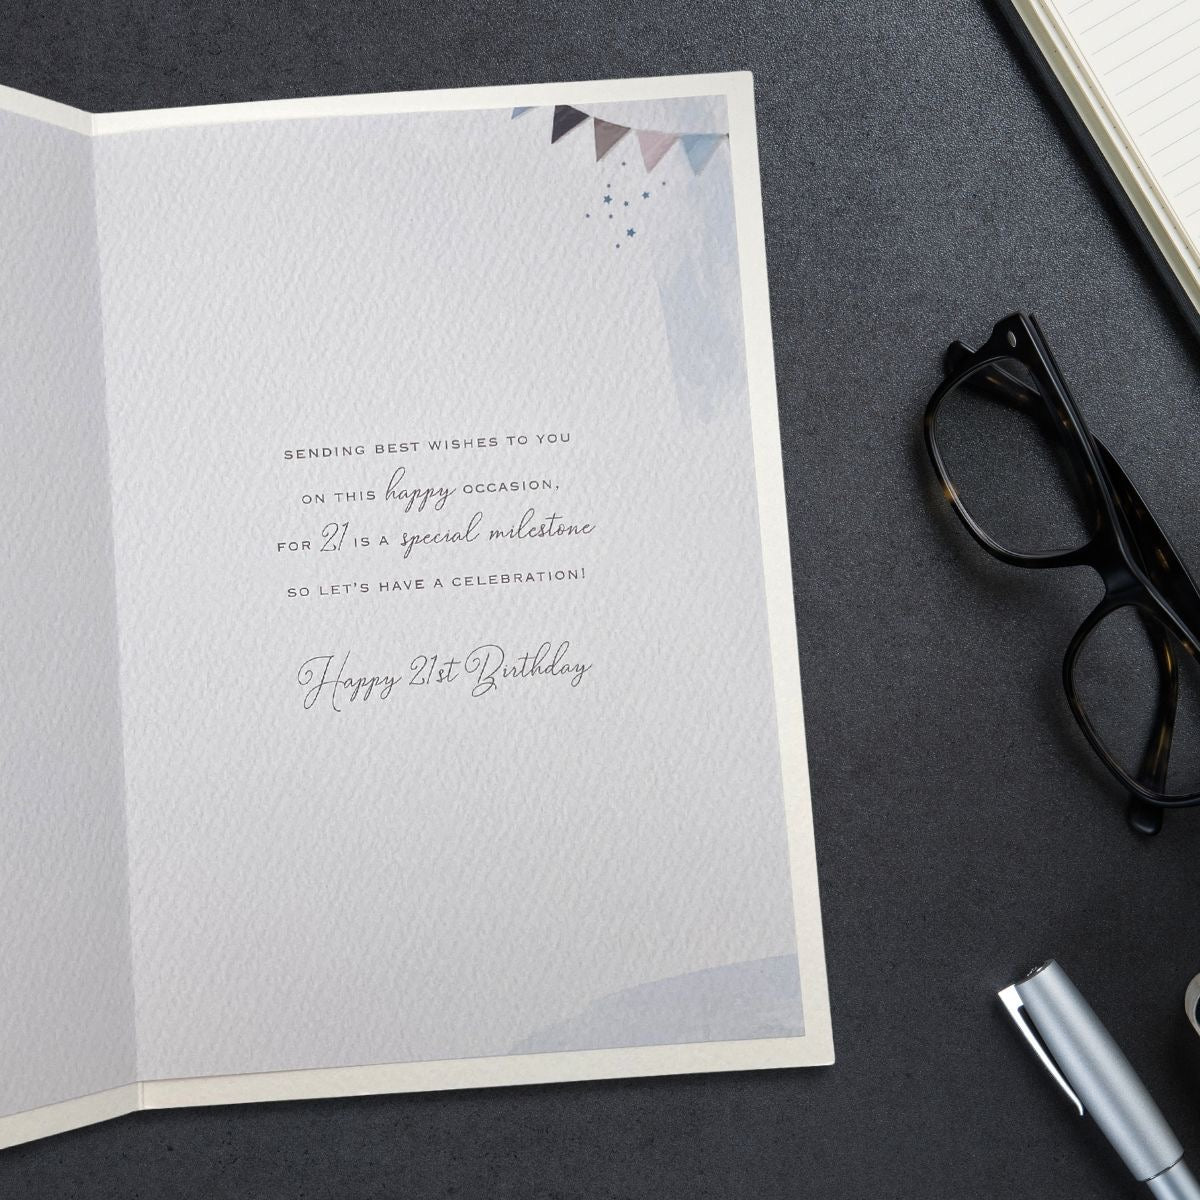 SENDING BEST WISHES TO YOU
ON THIS happy OCCASION,
FOR 21 IS A special milestone
SO LET'S HAVE A CELEBRATION!
Happy 21st Birthday